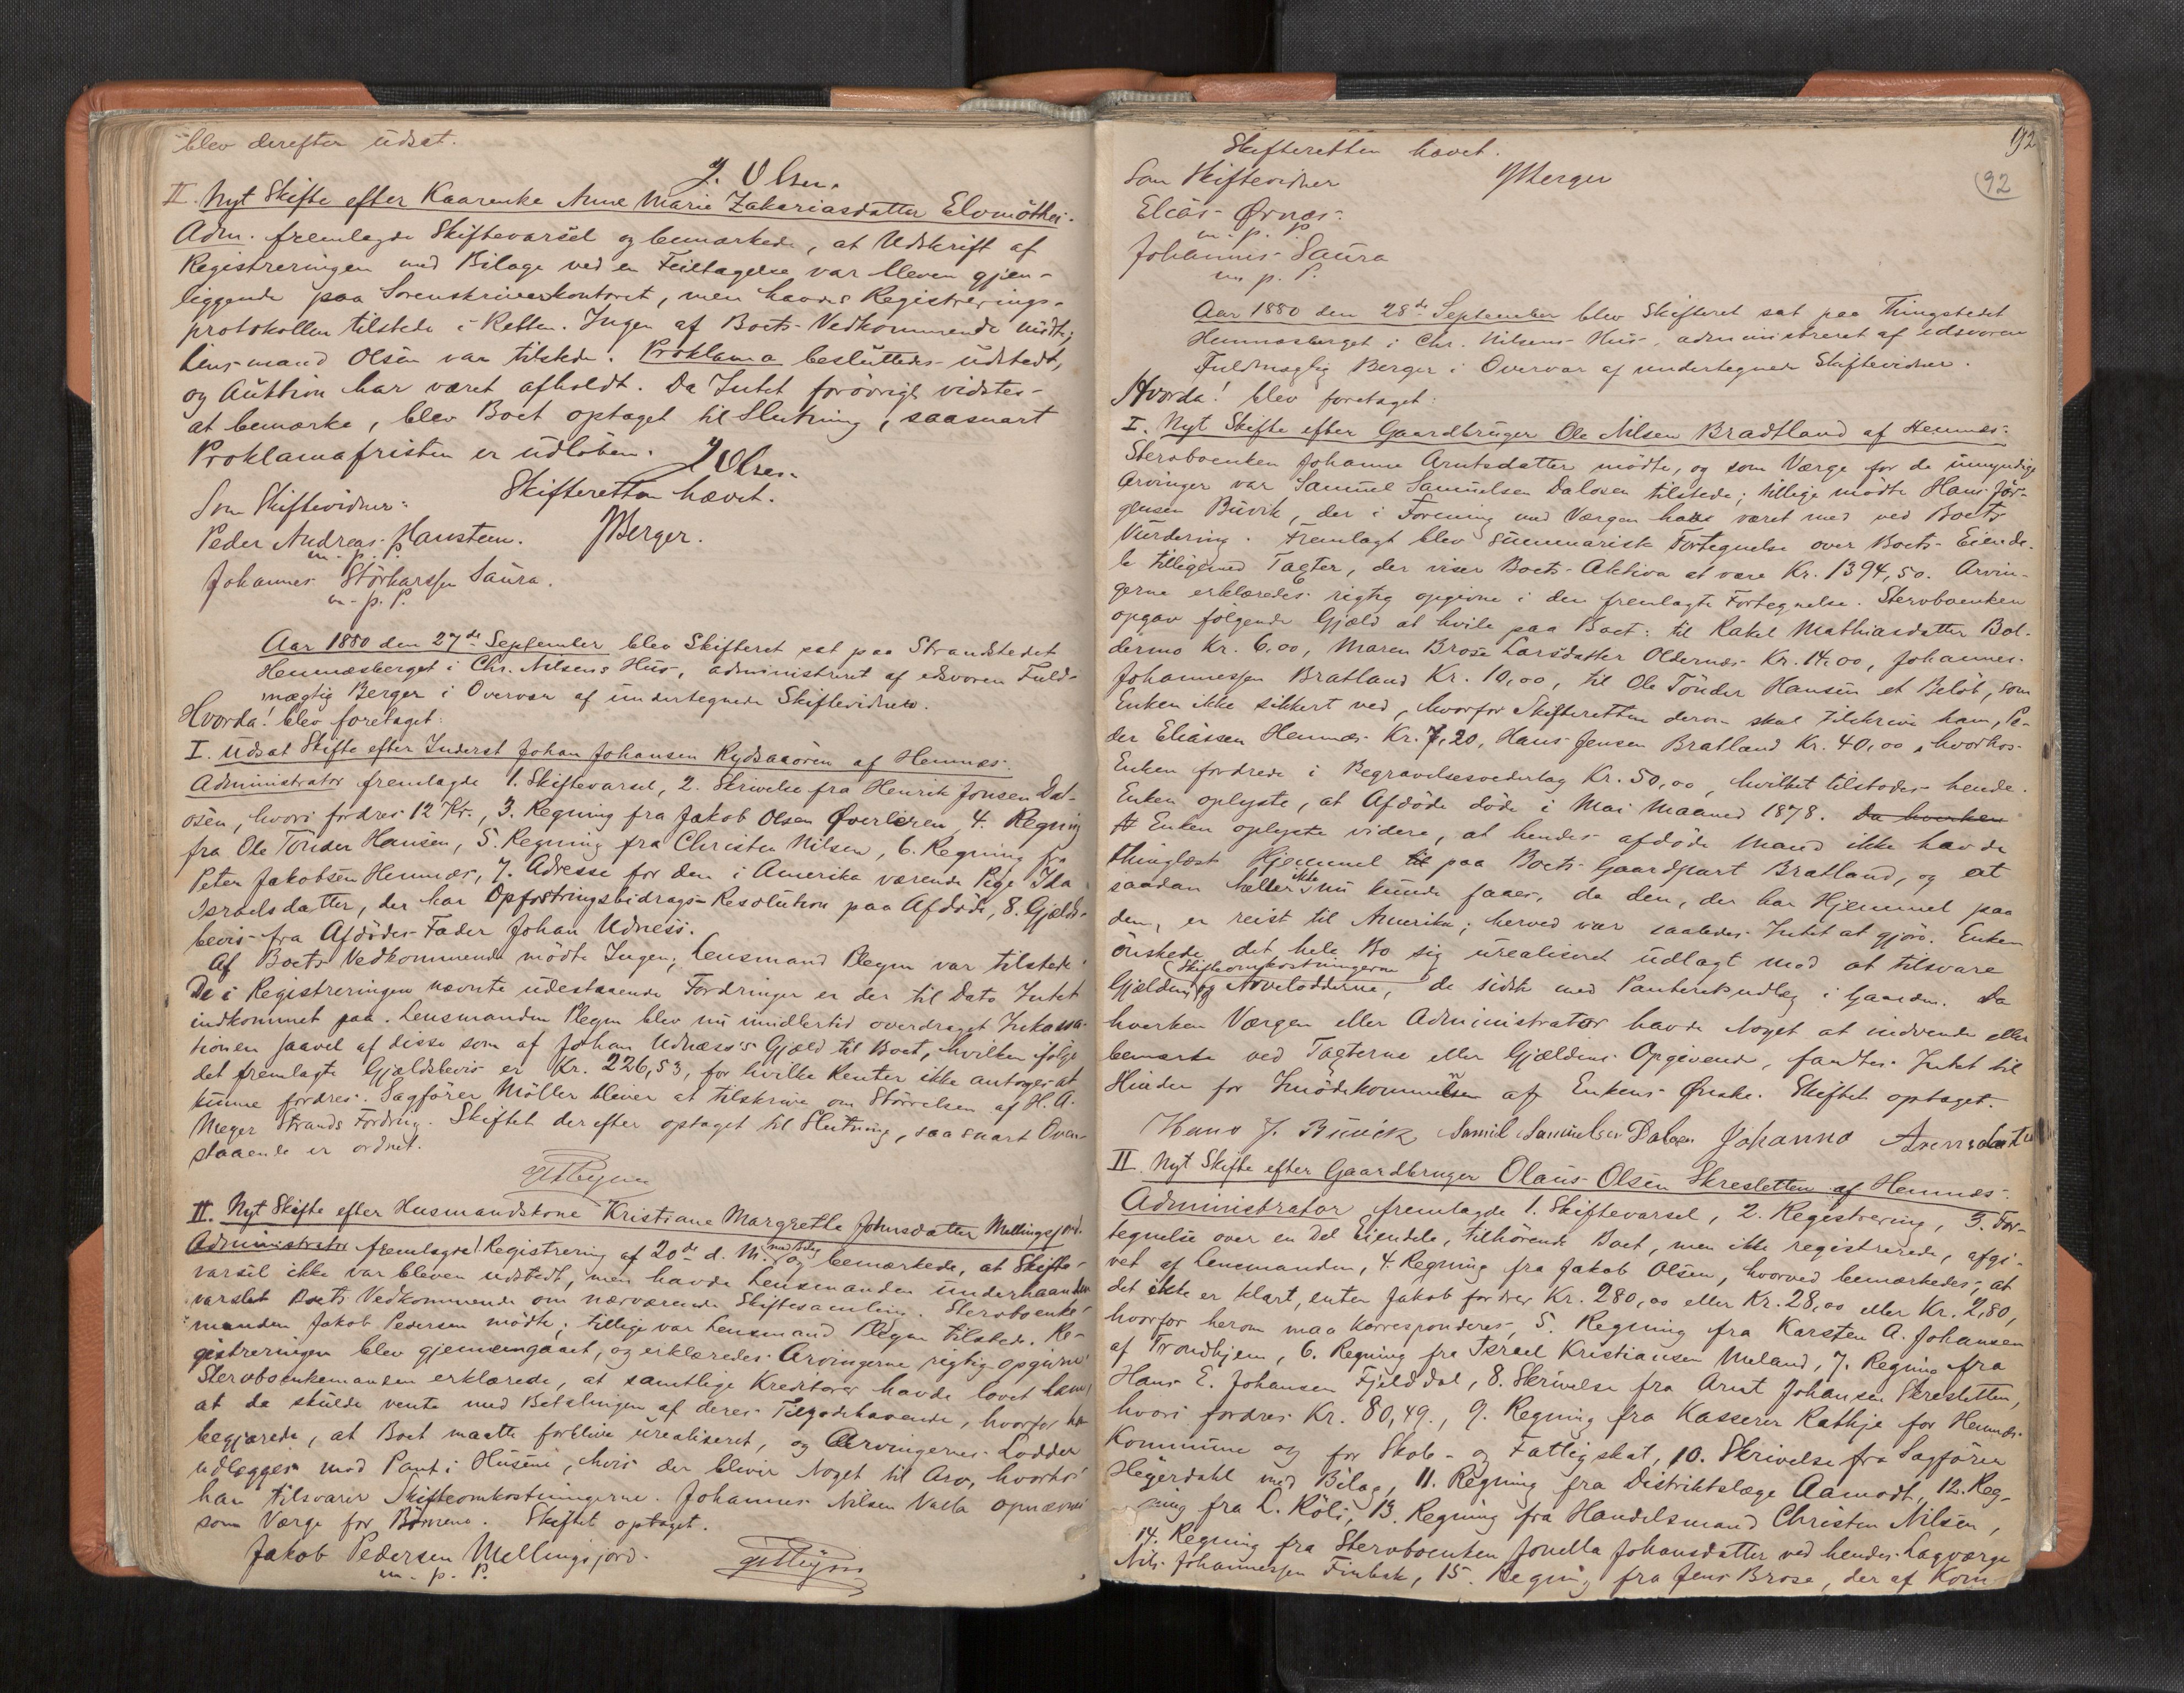 blev derefter udsat.
J. Olsen.
II. Nyt Skifte efter Kaarenke Anne Marie Zakariasdatter Elvmöthei.
Adm. fremlagde Skiftevarsel og bemærkede, at Udskrift af
Registreringen med Bilage ved en Feiltagelse var bleven gjen-
liggende paa Sorenskriverkontoret, men havdes Registrerings-
protokollen tilstede i Retten. Ingen af Boets Vedkommende mödte;
Lensmand Olsen var tilstede. Proklama besluttedes udstedt,
og Auktion har været afholdt. Da Intet forövrigt vidstes
at bemærke, blev Boet optaget til Slutning, saasnart
Proklamafristen er udlöben. J Olsen.
Skifteretten hævet.
Som Skiftevidner:
Peder Andreas Hansteen. JBerger.
m. p. P.
Johannes Störkarssen Saura.
m. p. P.
Aar 1880 den 27de September blev Skifteret sat paa Strandstedet
Hemnæsberget i Chr. Nilsens Hus, administreret af edsvoren Fuld-
mægtig Berger i Overvær af undertegnede Skiftevidner.
Hvorda! blev foretaget:
I. Udsat Skifte efter Inderst Johan Johansen Rydsaaören af Hemnæs.
Administrator fremlagde 1. Skiftevarsel, 2. Skrivelse fra Henrik Jonsen Dal-
osen, hvori fordres 12 Kr., 3. Regning fra Jakob Olsen Överleren, 4. Regning
fra Ole Tönder Hansen, 5. Regning fra Christen Nilsen, 6. Regning fra
Peter Jakobsen Hemnæs, 7. Adresse for den i Amerika værende Pige Ida
Israelsdatter, der har Opfostringsbidrags-Resolution paa Afdöde, 8. Gjælds-
bevis fra Afdödes Fader Johan Udnæss.
Af Boets Vedkommende mödte Ingen; Lensmand Pleym var tilstede.
De i Registreringen nævnte udestaaende Fordringer er der til Dato Intet
indkommet paa. Lensmanden Pleym blev nu imidlertid overdraget Inkassa-
tionen saavel af disse som af Johan Udnæss's Gjæld til Boet, hvilken ifölge
det fremlagte Gjældsbevis er Kr. 226,53, for hvilke Renter ikke antages at
kunne fordres. Sagförer Möller bliver at tilskrive om Störrelsen af H. A.
Meyer Strands Fordring. Skiftet derefter optaget til Slutning, saasnart Oven-
staaende er ordnet.
II. Nyt Skifte efter Husmandskone Kristiane Margrethe Johnsdatter Mellingsjord.
Administrator fremlagde! Registrering af 20de d. M. med Bilag og bemærkede, at Skifte-
varsel ikke var bleven udstedt, men havde Lensmanden underhaanden
varslet Boets Vedkommende om nærværende Skiftesamling. Stervboenke-
manden Jakob Pedersen mödte; tillige var Lensmand Pleym tilstede. Re-
gistreringen blev gjennemgaaet, og erklæredes Arvingerne rigtig opgivne.
Stervboenkemanden erklærede, at samtlige Kreditorer havde lovet ham,
at de skulde vente med Betalingen af deres Tilgodehavende, hvorfor han
begjærede, at Boet maatte forblive urealiseret, og Arvingernes Lodder
udlægges mod Pant i Husene, hvis der bliver Noget til Arv, hvorhos
han tilsvarer Skifteomkostningerne. Johannes Nilsen Valla opnævnes
som Værge for Börnene. Skiftet optaget.
Jakob Pedersen Mellingsjord.
m. p. P.
192
92
Skifteretten hævet.
Som Skiftevidner JBerger
Elias Ørnæs
m. p. P.
Johannes Saura
m. p. P.
Aar 1880 den 28de September blev Skifteret sat paa Thingstedet
Hemnæsberget i Chr. Nilsens Hus, administreret af edsvoren
Fuldmægtig Berger i Overvær af undertegnede Skiftevidner.
Hvorda! blev foretaget:
I. Nyt Skifte efter Gaardbruger Ole Nilsen Bradtland af Hemnæs.
Stervboenken Johanne Arntsdatter mödte, og som Værge for de umyndige
Arvinger var Samuel Samuelsen Dalosen tilstede; tillige mödte Hans Jör-
gensen Buvik, der i Forening med Værgen havde været med ved Boets
Vurdering. Fremlagt blev summarisk Fortegnelse over Boets Eiende-
le tilligemed Tagter, der viser Boets Aktiva at være Kr. 1394,50. Arvin-
gerne erklæredes rigtig opgivne i den fremlagte Fortegnelse. Stervboenken
opgav fölgende Gjæld at hvile paa Boet: til Rakel Mathiasdatter Bol-
dermo Kr. 6,00, Maren Brose Larsdatter Oldernæs Kr. 14,00, Johannes
Johannessen Bratland Kr. 10,00, til Ole Tönder Hansen et Belöb, som
Enken ikke sikkert ved, hvorfor Skifteretten derom skal tilskrive ham, Pe-
der Eliassen Hemnæs Kr. 7,20, Hans Jensen Bratland Kr. 40,00, hvorhos
Enken fordrede i Begravelsesvederlag Kr. 50,00, hvilket tilstodes hende.
Enken oplyste, at Afdöde döde i Mai Maaned 1878. Da hverken
At Enken oplyste videre, at hendes afdöde Mand ikke havde
thinglæst Hjemmel til paa Boets Gaardpart Bratland, og at
saadan heller ikke nu kunde faaes, da den, der har Hjemmel paa
den, er reist til Amerika; herved var saaledes Intet at gjöre. Enken
önskede det hele Bo sig urealiseret udlagt mod at tilsvare
Gjælden, Skifteomkostningerne og Arvelodderne, de sidste med Panteretsudlæg i Gaarden. Da
hverken Værgen eller Administrator havde Noget at indvende eller
bemærke ved Tagterne eller Gjældens Opgivende, fandtes Intet til
Hinder for Imödekommelsen af Enkens Ønske. Skiftet optaget.
Hans J. Buvick Samuel Samuelsen Dalosen Johanna Arensdatter
II. Nyt Skifte efter Gaardbruger Olaus Olsen Skresletten af Hemnæs.
Administrator fremlagde 1. Skiftevarsel, 2. Registrering, 3. For-
tegnelse over en Del Eiendele, tilhörende Boet, men ikke registrerede, afgi-
vet af Lensmanden, 4. Regning fra Jakob Olsen, hvorved bemærkedes, at
det ikke er klart, enten Jakob fordrer Kr. 280,00 eller Kr. 28,00 eller Kr. 2,80,
hvorfor herom maa korresponderes, 5. Regning fra Karsten A. Johansen
af Trondhjem, 6. Regning fra Israel Kristiansen Meland, 7. Regning fra
Hans E. Johansen Fjelddal, 8. Skrivelse fra Arnt Johansen Skresletten,
hvori fordres Kr. 80,49., 9. Regning fra Kasserer Rathje for Hemnæs
Kommune og for Skole- og Fattigskat, 10. Skrivelse fra Sagförer
Hegerdahl med Bilag, 11. Regning fra Distriktslæge Aamodt, 12. Reg-
ning fra L. Röli, 13. Regning fra Handelsmand Christen Nilsen,
14. Regning fra Stervboenken Jonella Johansdatter ved hendes Lagværge
Nils Johannessen Finbak, 15. Regning fra Jens Brose, der af Kom-